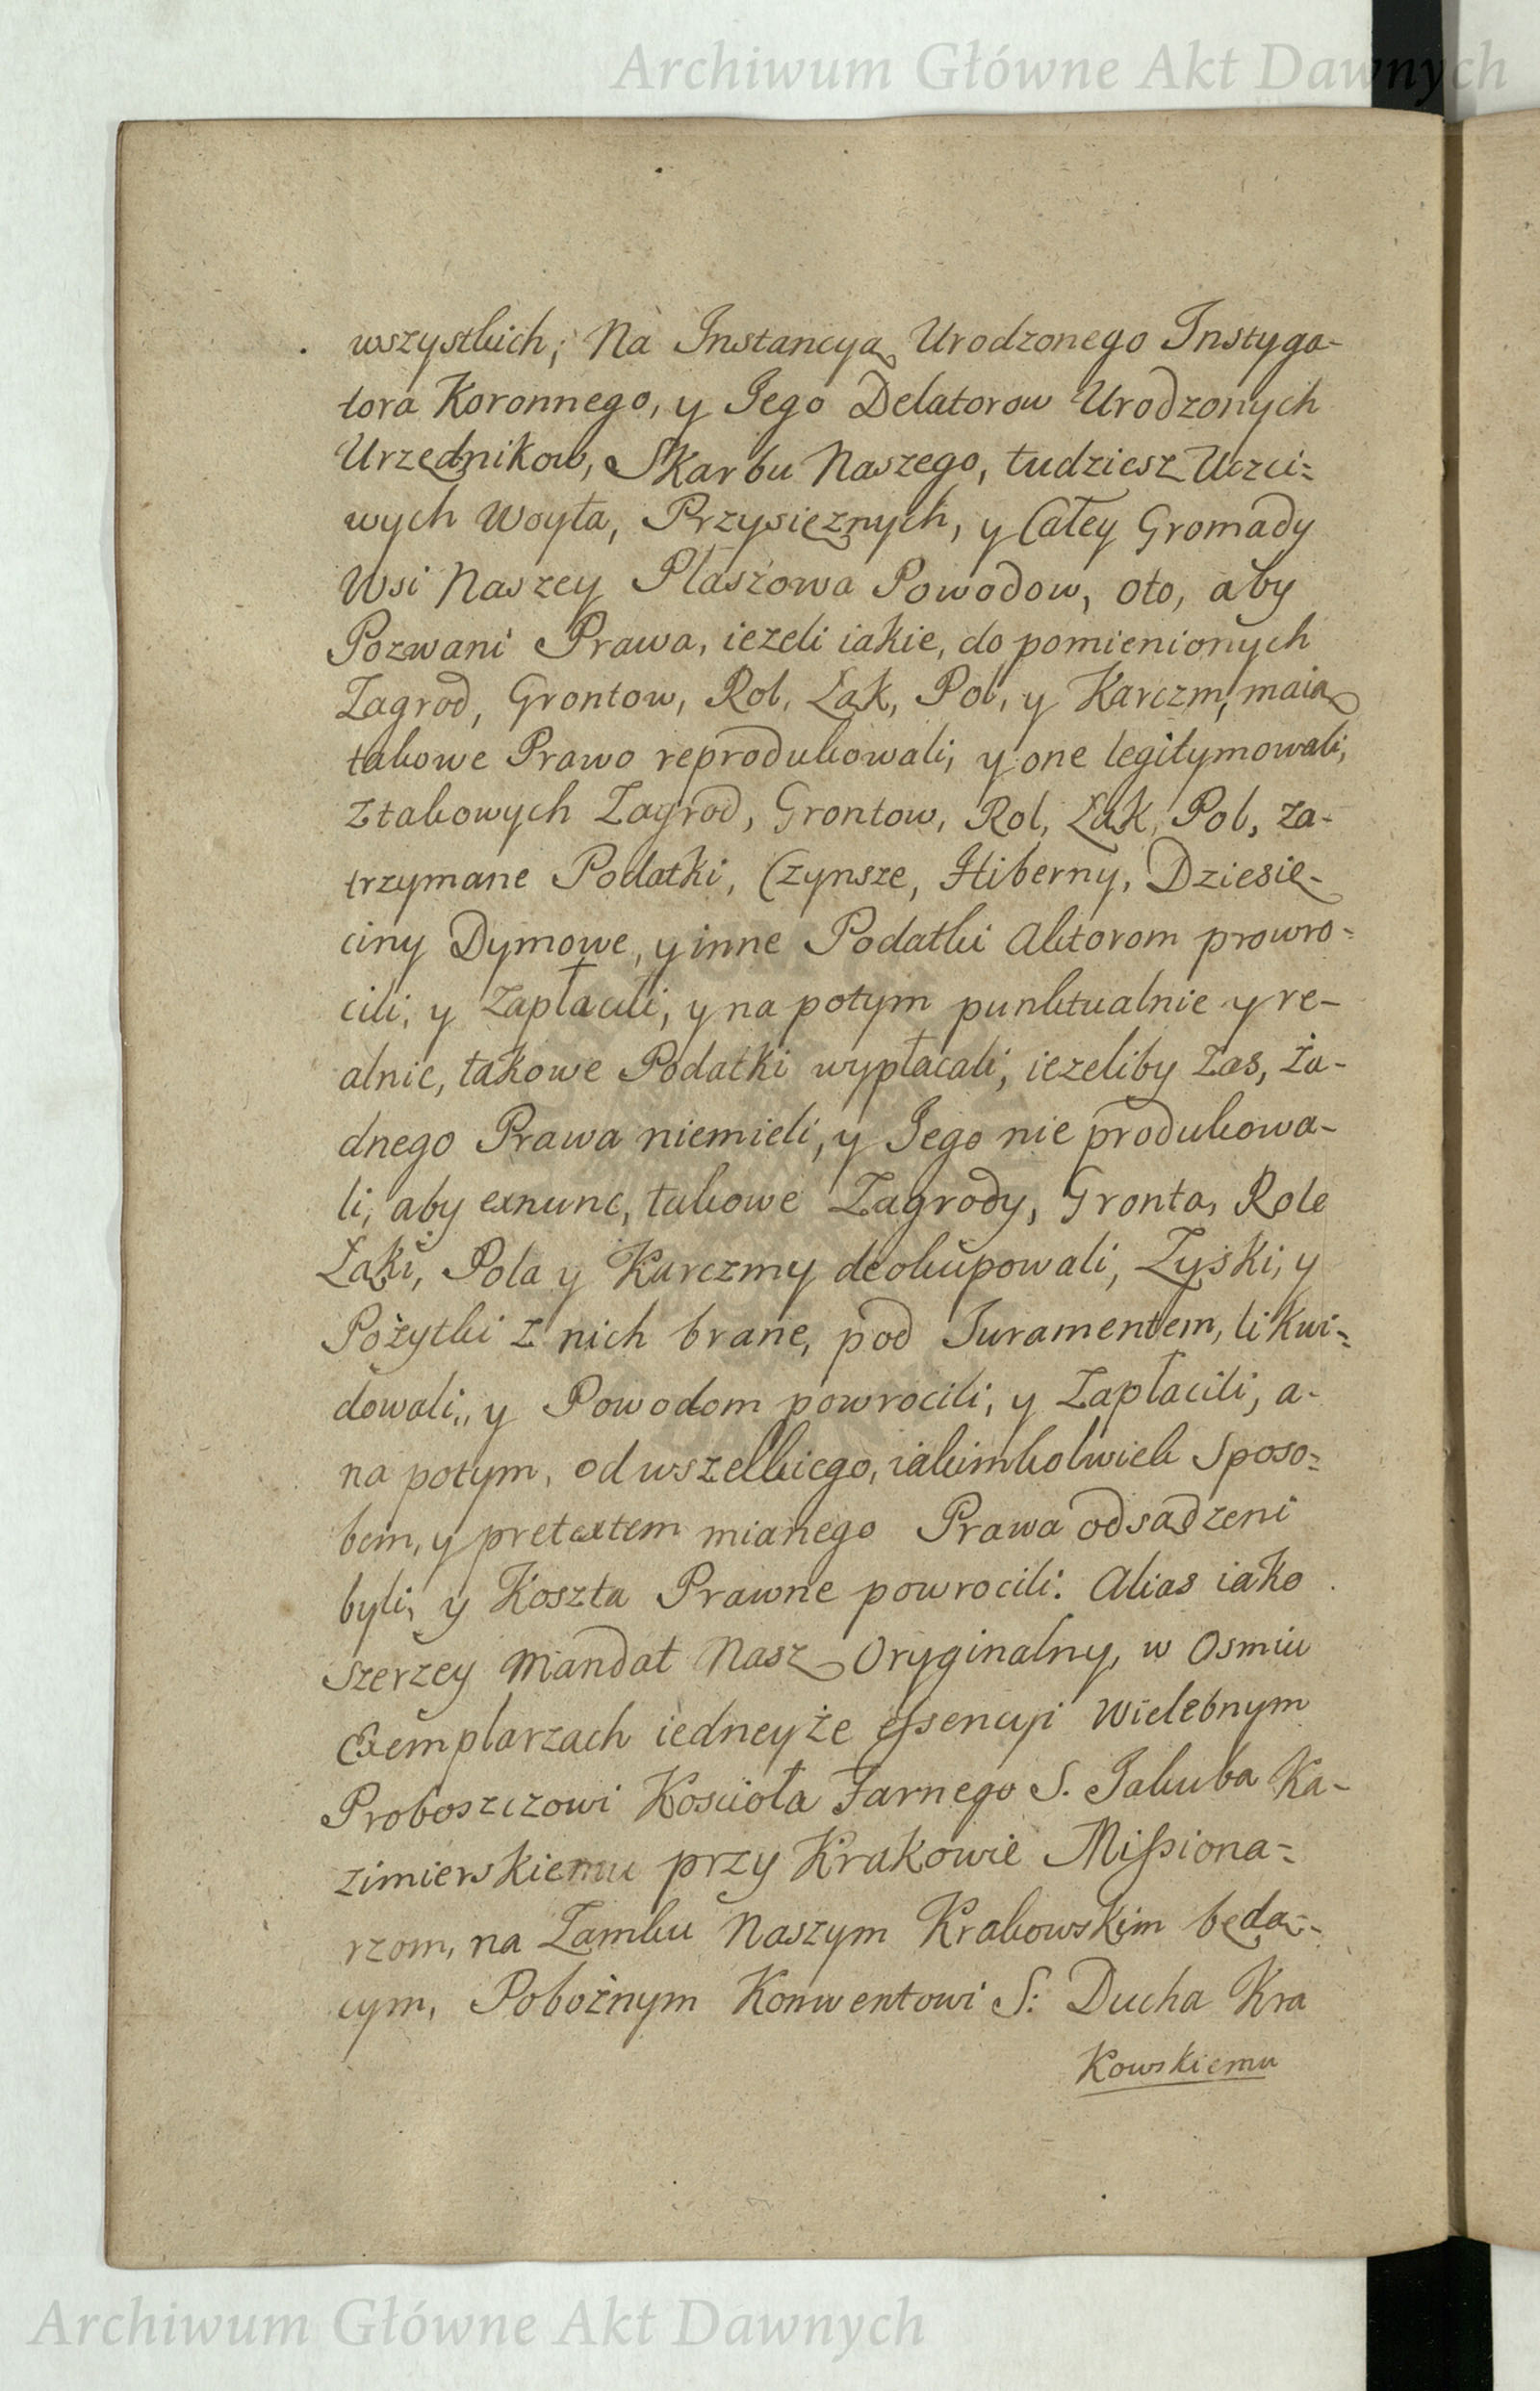 Archiwum Główne Akt Dawnych
wszystkich; Na Instancyą Urodzonego Instyga-
tora Koronnego, y Jego Delatorow Urodzonych
Urzędnikow, Skarbu Naszego, tudziesz Uczci=
wych Woyta, Przysięznych, y Całey Gromady
Wsi Naszey Płaszowa Powodow, oto, aby
Pozwani Prawa, iezeli iakie, do pomienionych
Zagrod, Grontow, Rol, Łąk, Pol, y Karczm, maią
takowe Prawo reprodukowali, y one legitymowali,
z takowych Zagrod, Grontow, Rol, Łąk, Pol, za-
trzymane Podatki, Czynsze, Hiberny, Dziesię-
ciny Dymowe, y inne Podatki Aktorom prowro=
cili, y Zapłacili, y na potym punktualnie y re-
alnie, takowe Podatki wypłacali, iezeliby Zas, ża-
dnego Prawa niemieli, y Jego nie produkowa-
li, aby exnunc, takowe Zagrody, Gronta, Role
Łąki, Pola y Karczmy deokupowali, Zyski, y
Pożytki z nich brane, pod Juramentem, likwi=
dowali,, y Powodom powrocili, y Zapłacili, a-
na potym, od wszelkiego, iakimkolwiek Sposo=
bem, y pretextem mianego Prawa odsądzeni
byli, y Koszta Prawne powrocili. Alias iako
szerzey Mandat Nasz Oryginalny, w Osmiu
Exemplarzach iedneyże essencyi Wielebnym
Proboszczowi Kościoła Farnego S. Jakuba Ka-
zimierskiemu przy Krakowie Missiona=
rzom, na Zamku Naszym Krakowskim będą=
cym, Pobożnym Konwentowi S: Ducha Kra
Kowskiemu
Archiwum Główne Akt Dawnych